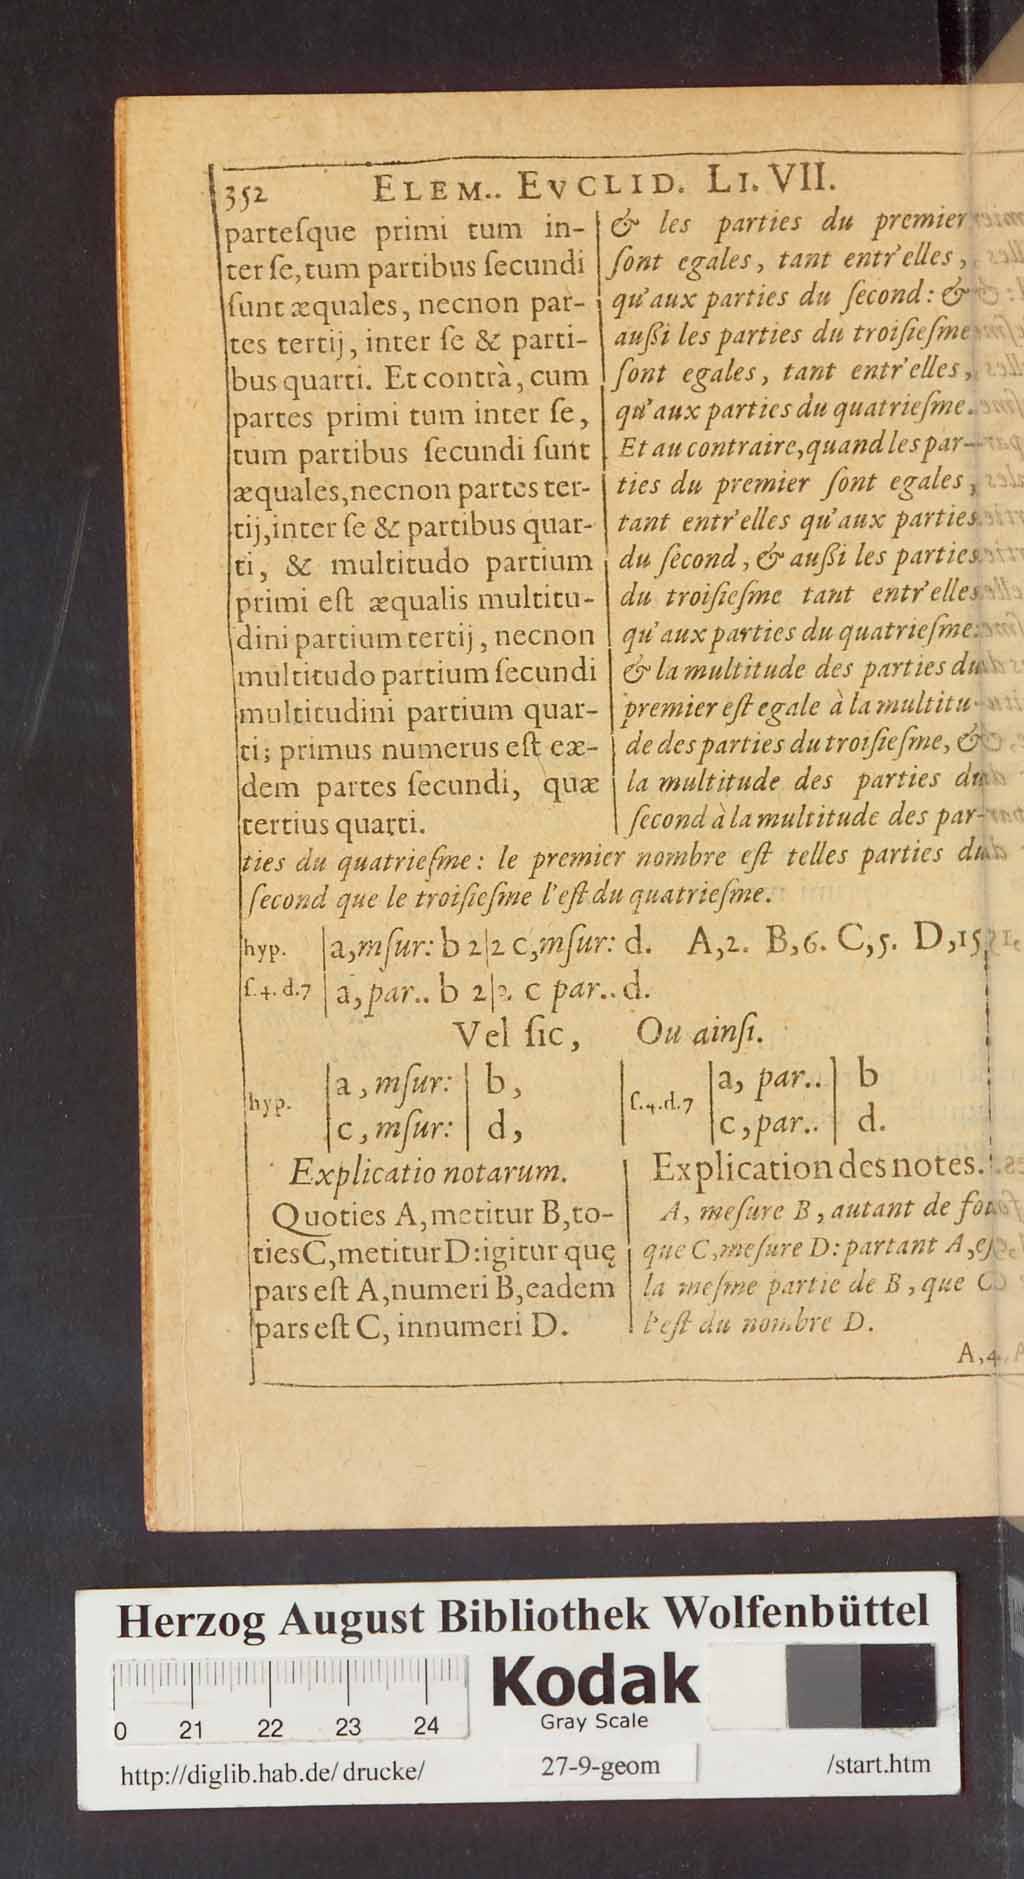 352 ELEM.. EVCLID. LI. VII.
parteſque primi tum in-
ter ſe, tum partibus ſecundi
ſunt æquales, necnon par-
tes tertij, inter ſe & parti-
bus quarti. Et contrà, cum
partes primi tum inter ſe,
tum partibus ſecundi ſunt
æquales, necnon partes ter-
tij, inter ſe & partibus quar-
ti, & multitudo partium
primi eſt æqualis multitu-
dini partium tertij, necnon
multitudo partium ſecundi
multitudini partium quar-
ti; primus numerus eſt eæ-
dem partes ſecundi, quæ
tertius quarti.
& les parties du premier
ſont egales, tant entr'elles,
qu'aux parties du ſecond: &
außi les parties du troiſieſme
ſont egales, tant entr'elles,
qu'aux parties du quatrieſme.
Et au contraire, quand les par-
ties du premier ſont egales,
tant entr'elles qu'aux parties
du ſecond, & außi les parties
du troiſieſme tant entr'elles
qu'aux parties du quatrieſme:
& la multitude des parties du
premier eſt egale à la multitu-
de des parties du troiſieſme, &
la multitude des parties du
ſecond à la multitude des par-
ties du quatrieſme: le premier nombre eſt telles parties du
ſecond que le troiſieſme l'eſt du quatrieſme.
hyp. | a, mſur: b 2|2 c, mſur: d. A,2. B,6. C,5. D,15
ſ.4. d.7 | a, par.. b 2|2 c par.. d.
Vel ſic, Ou ainſi.
hyp. | a, mſur: | b, | ſ.4.d.7 | a, par.. | b
| c, mſur: | d, | c, par.. | d.
Explicatio notarum.
Quoties A, metitur B, to-
ties C, metitur D: igitur quę
pars eſt A, numeri B, eadem
pars eſt C, in numeri D.
Explication des notes.
A, meſure B, autant de fo
que C, meſure D: partant A, eſ
la meſme partie de B, que C
l'eſt du nombre D.
A, 4.
Herzog August Bibliothek Wolfenbüttel
Kodak
Gray Scale
0 21 22 23 24
http://diglib.hab.de/drucke/ 27-9-geom /start.htm